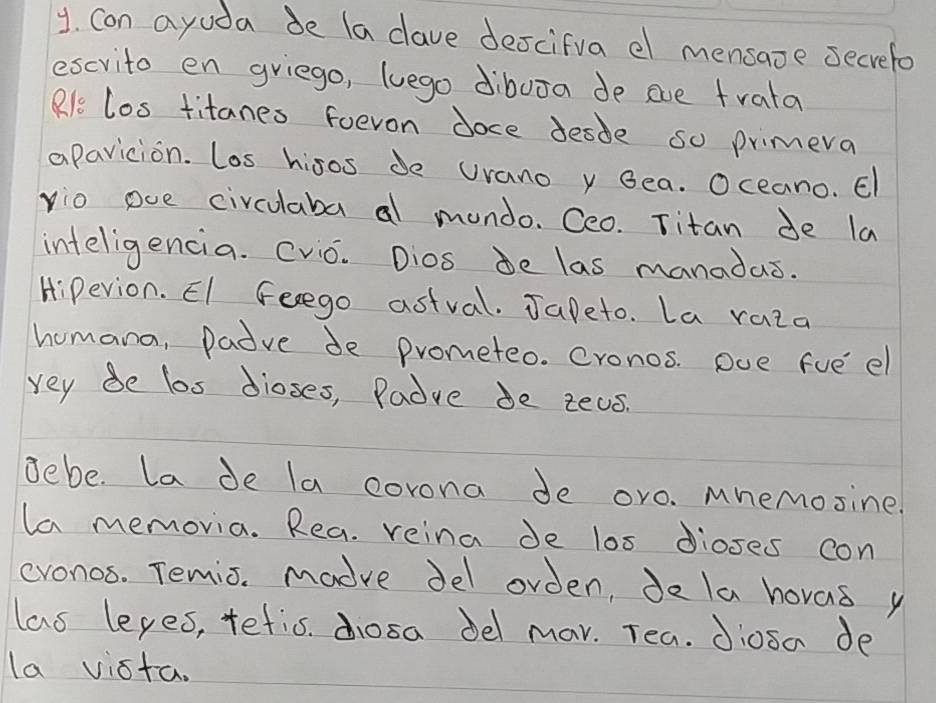 1. Con ayuda de la clave descifra el mensaje secreto
escrito en griego, luego dibuja de que trata
R1: Los titanes fueron doce desde su primera
aparición. Los hijos de Urano y Gea. Oceano. El
rio que circulaba al mundo. Ceo. Titan de la
inteligencia. Crió. Dios de las manadas.
Hiperion. El Fuego astral. Japeto. La raza
humana, Padre de Prometeo. Cronos. Que fué el
rey de los dioses, Padre de zeus.
Febe. La de la corona de oro. Mnemosine.
La memoria. Rea. reina de los dioses con
cronos. Temis. Madre del orden, de la horas y
las leyes, tetis. diosa del mar. Tea. diosa de
la vista.